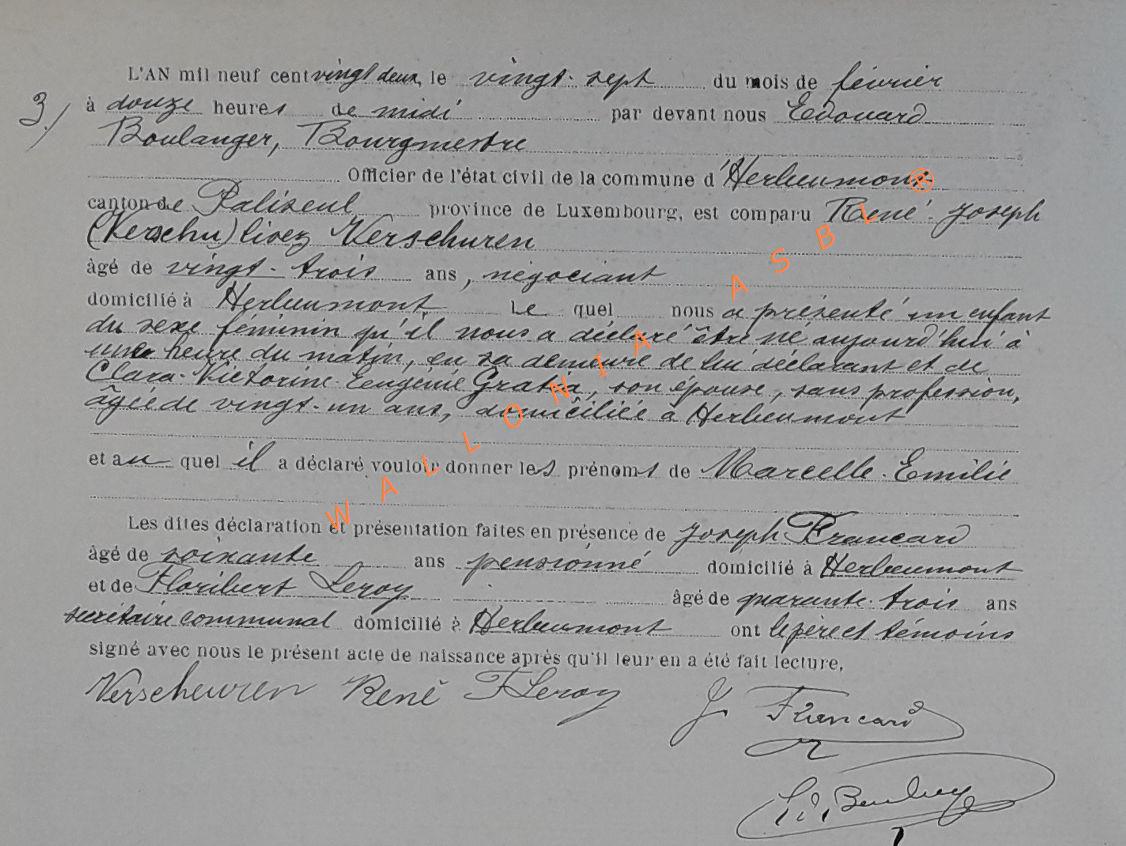 L'AN mil neuf cent vingt deux, le vingt-sept du mois de février
3./ à douze heures de midi par devant nous Edouard
Boulanger, Bourgmestre
Officier de l'état civil de la commune d'Herbeumont
canton de Paliseul province de Luxembourg, est comparu René-Joseph
(Verschu) lisez Verschuren
âgé de vingt-trois ans, négociant
domicilié à Herbeumont Le quel nous a présenté un enfant
du sexe féminin qu'il nous a déclaré être né aujourd'hui à
une heure du matin, en sa demeure de lui déclarant et de
Clara-Victorine-Eugénie Gratia, son épouse, sans profession,
âgée de vingt-un ans, domiciliée à Herbeumont
et au quel il a déclaré vouloir donner les prénoms de Marcelle-Emilie
Les dites déclaration et présentation faites en présence de Joseph Francard
âgé de soixante ans pensionné domicilié à Herbeumont
et de Floribert Leroy âgé de quarante-trois ans
secrétaire communal domicilié à Herbeumont ont le père et témoins
signé avec nous le présent acte de naissance après qu'il leur en a été fait lecture,
Verscheuren René F Leroy J Francard
WALLONIA ASBL